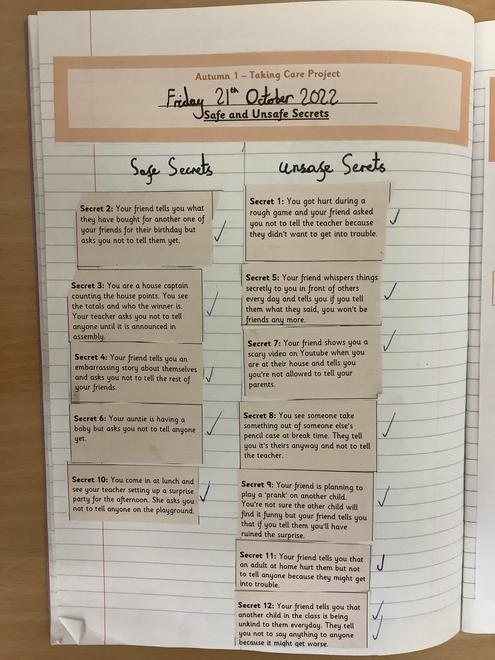 Autumn 1 – Taking Care Project
Friday 21st October 2022
Safe and Unsafe Secrets
Safe Secrets
Secret 2: Your friend tells you what
they have bought for another one of
your friends for their birthday but
asks you not to tell them yet.
Secret 3: You are a house captain
counting the house points. You see
the totals and who the winner is.
Your teacher asks you not to tell
anyone until it is announced in
assembly.
Secret 4: Your friend tells you an
embarrassing story about themselves
and asks you not to tell the rest of
your friends.
Secret 6: Your auntie is having a
baby but asks you not to tell anyone
yet.
Secret 10: You come in at lunch and
see your teacher setting up a surprise
party for the afternoon. She asks you
not to tell anyone on the playground.
Unsafe Serets
Secret 1: You got hurt during a
rough game and your friend asked
you not to tell the teacher because
they didn't want to get into trouble.
Secret 5: Your friend whispers things
secretly to you in front of others
every day and tells you if you tell
them what they said, you won't be
friends any more.
Secret 7: Your friend shows you a
scary video on Youtube when you
are at their house and tells you
you're not allowed to tell your
parents.
Secret 8: You see someone take
something out of someone else's
pencil case at break time. They tell
you it's theirs anyway and not to tell
the teacher.
Secret 9: Your friend is planning to
play a 'prank' on another child.
You're not sure the other child will
find it funny but your friend tells you
that if you tell them you'll have
ruined the surprise.
Secret 11: Your friend tells you that
an adult at home hurt them but not
to tell anyone because they might get
into trouble.
Secret 12: Your friend tells you that
another child in the class is being
unkind to them everyday. They tell
you not to say anything to anyone
because it might get worse.